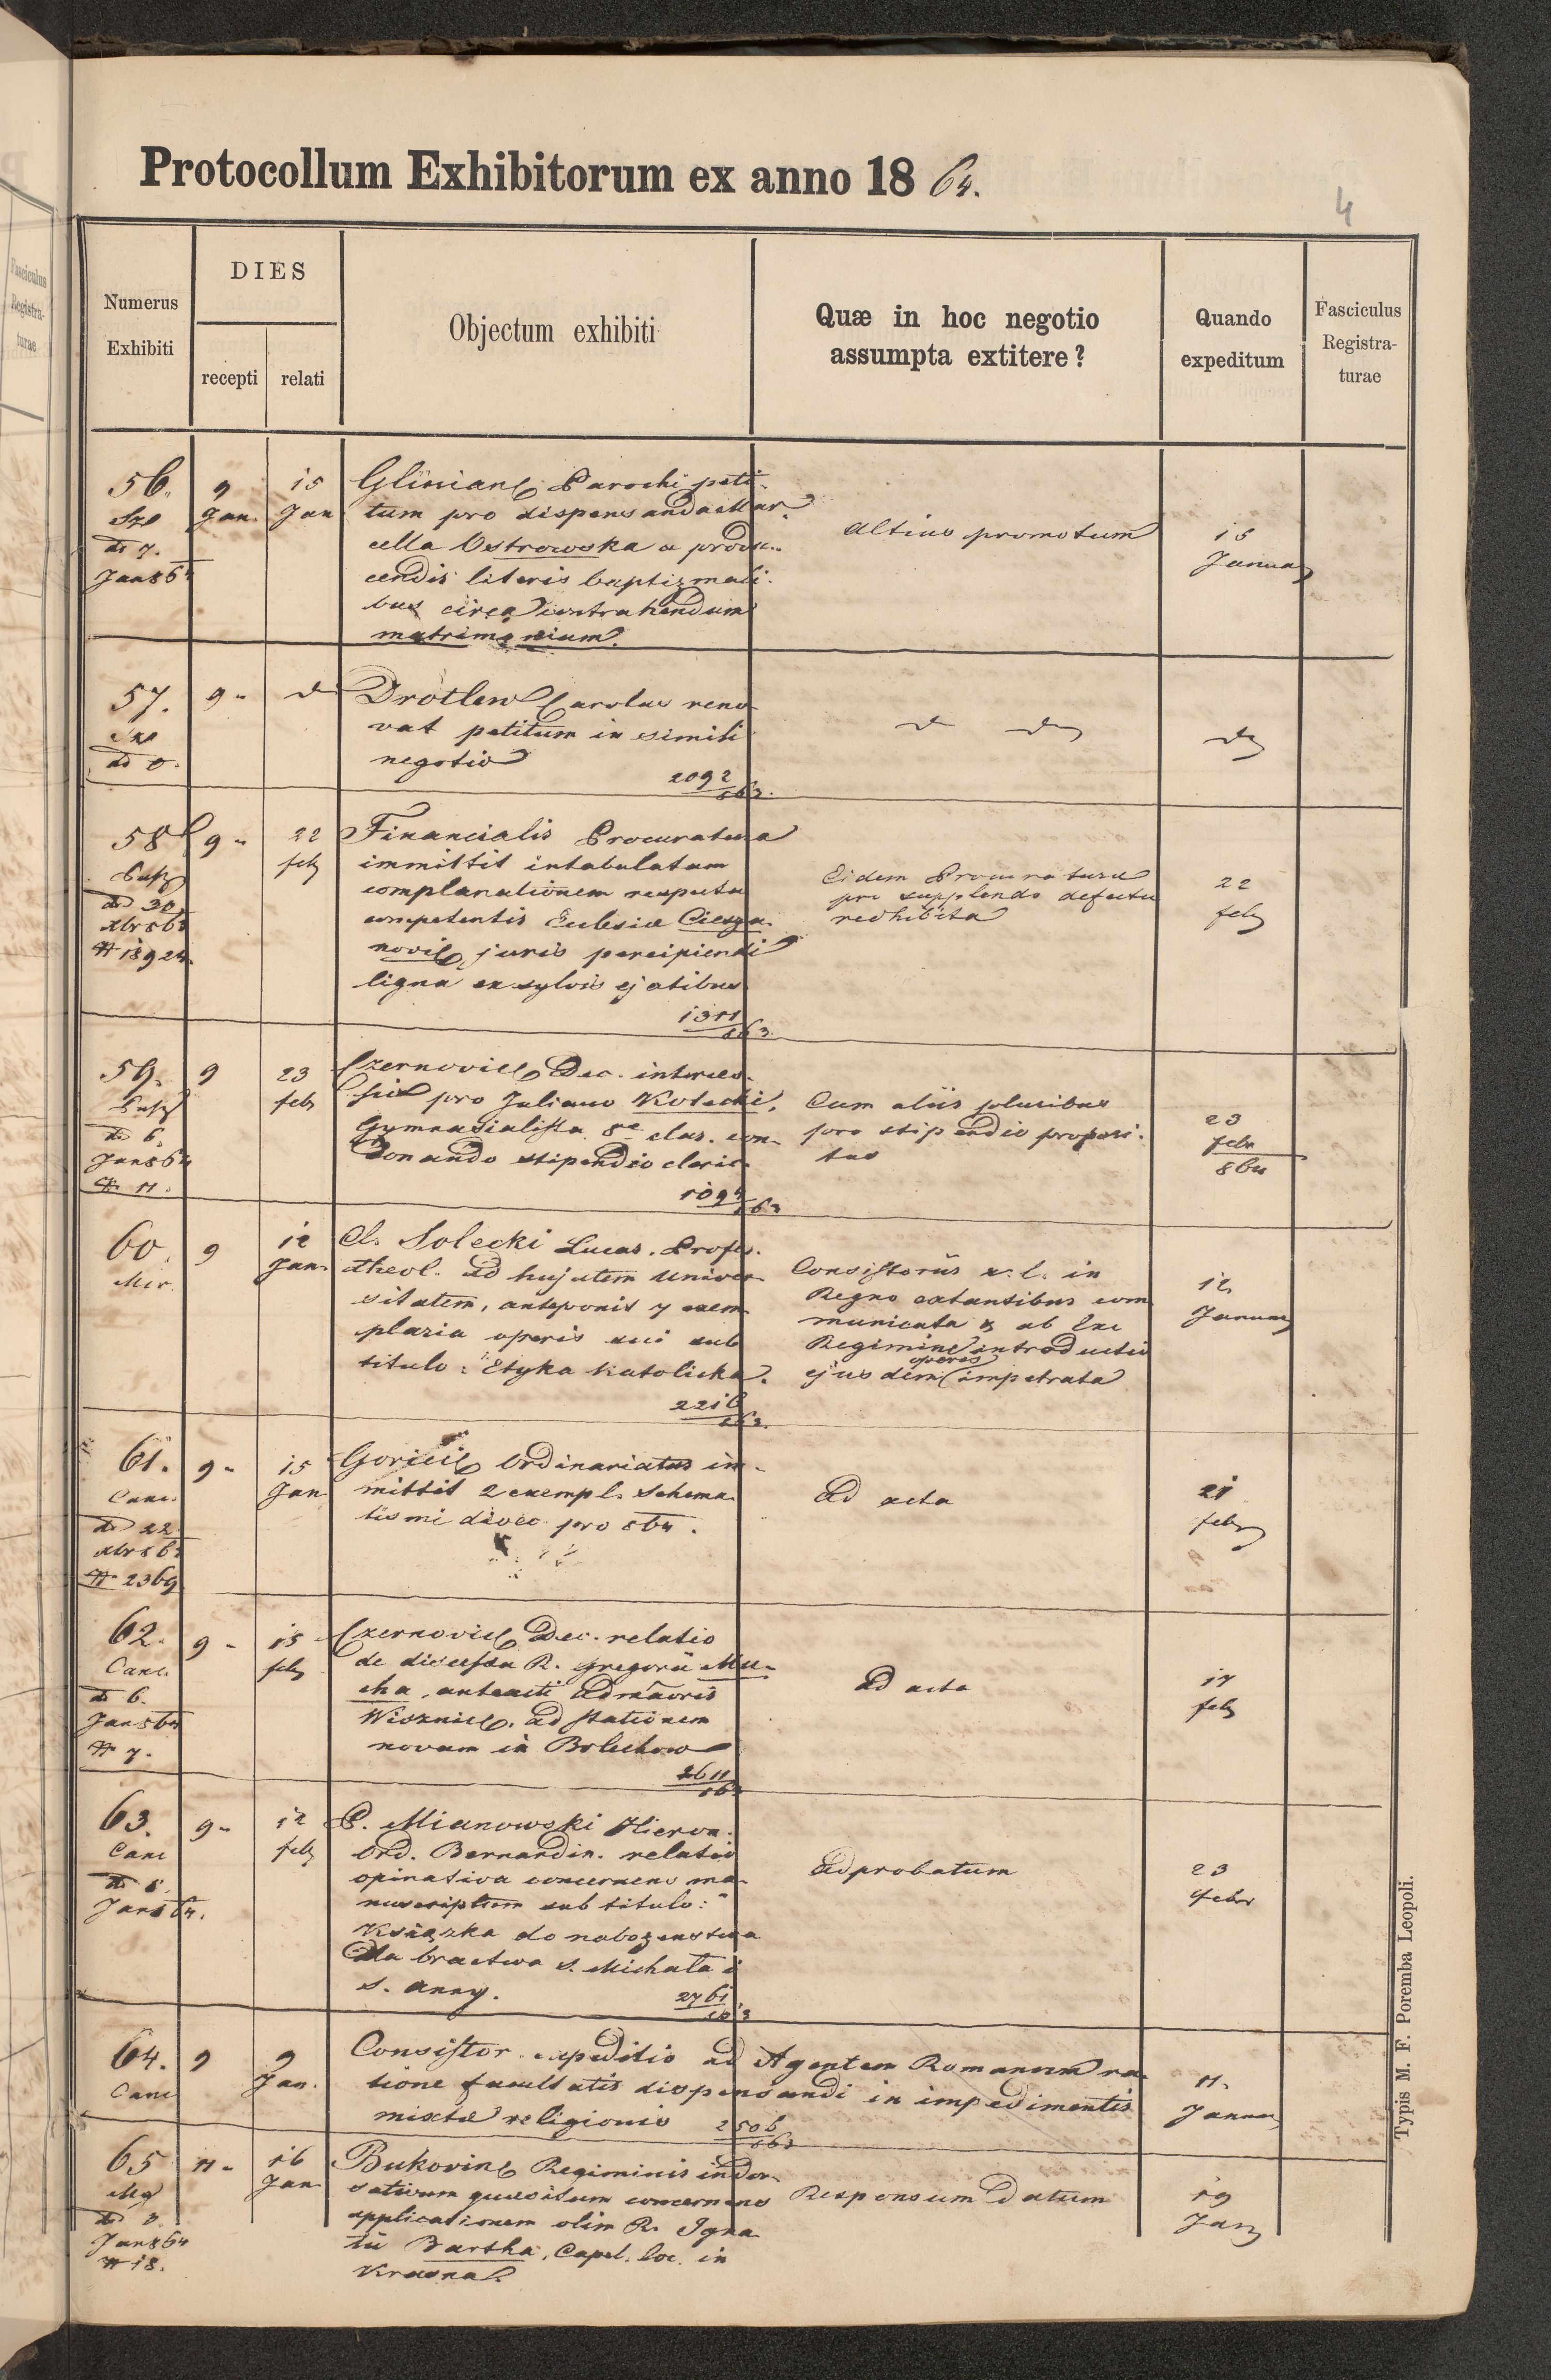 Protocollum Exhibitorum ex anno 1864.
4
Numerus
Exhibiti
DIES
recepti
relati
Objectum exhibiti
Quæ in hoc negotio
assumpta extitere?
Quando
expeditum
Fasciculus
Registra-
turae
56.
9
Jan.
15
Jan
Glinian Parochi peti-
tum pro dispensanda Mar-
cella Ostrowska a produ-
cendis literis baptizmali-
bus circa contrahendum
matrimonium.
altius promotum
15
Januar
57.
9
Drotlew Carolus reno-
vat petitum in simili
negotio
2092
863.
58
9
22
feb
Financialis Procuratura
immittit intabulatam
complanationem respectu
competentis Ecclesiæ Ciesza-
novie juris percipiendi
ligna ex sylvis ejatibus
1311
863
Eidem Procuraturæ
pro supplendo defectu
redhibita
22
feb
de 30
xbr 863
# 18924
59.
9
23
feb
Czernovic Dec. interces-
sit pro Juliano Kotecki,
Gymnasialista 8æ clas. con-
donando stipendio cleric
1094
863
Cum aliis pluribus
pro stipendio proposi-
tus
23
febr
864
de 6.
Jan 864
# 11.
60.
9
12
Jan
Cl. Solecki Lucas. Profes.
theol. ad hujatem Univer-
sitatem, anteponit 7 exem-
plaria operis sui sub
titulo: "Etyka katolicka.
2216
863.
Consistoriis r. l. in
Regno extantibus com-
municata & ab Exc
Regimine introductio
ejusdem operis impetrata
12
Januar
61.
9
15
Jan
Goricie Ordinariatus im-
mittit 2 exempl. Schema-
tismi diœc pro 864.
ad acta
21
feb
Canc.
de 22
xbr 863
# 2369
62.
9
15
feb
Czernovic Dec. relatio
de discessu R. Gregorii Mu-
cha, anteacti Admãoris
Wisznic. ad stationem
novam in Bolechow
2611
863
ad acta
17
feb
Canc.
de 6.
Jan 864
# 7.
63.
9
12
feb
P. Mianowski Hieron.
Ord. Bernardin. relatio
opinativa concernens ma-
nuscriptum sub titulo:"
Książka do nabożenstwa
dla bractwa S. Michała i
S. Anny.
2761
863
adprobatum
23
febr
Canc
Jan 864.
64.
9
9
Jan.
Consistor. expeditio ad Agentem Romanum ra-
tione facultatis dispensandi in impedimentis
mixtæ religionis
2506
863
11.
Januar
Canc
65
11
16
Jan
Bukovin Regiminis indor-
sativum quæsitum concernens
applicationem olim R. Igna-
tii Bartha, Capel. loc. in
Krasna.
Responsum datum
19
Jan
Jan 864
# 18.
Typis M. F. Poremba Leopoli.